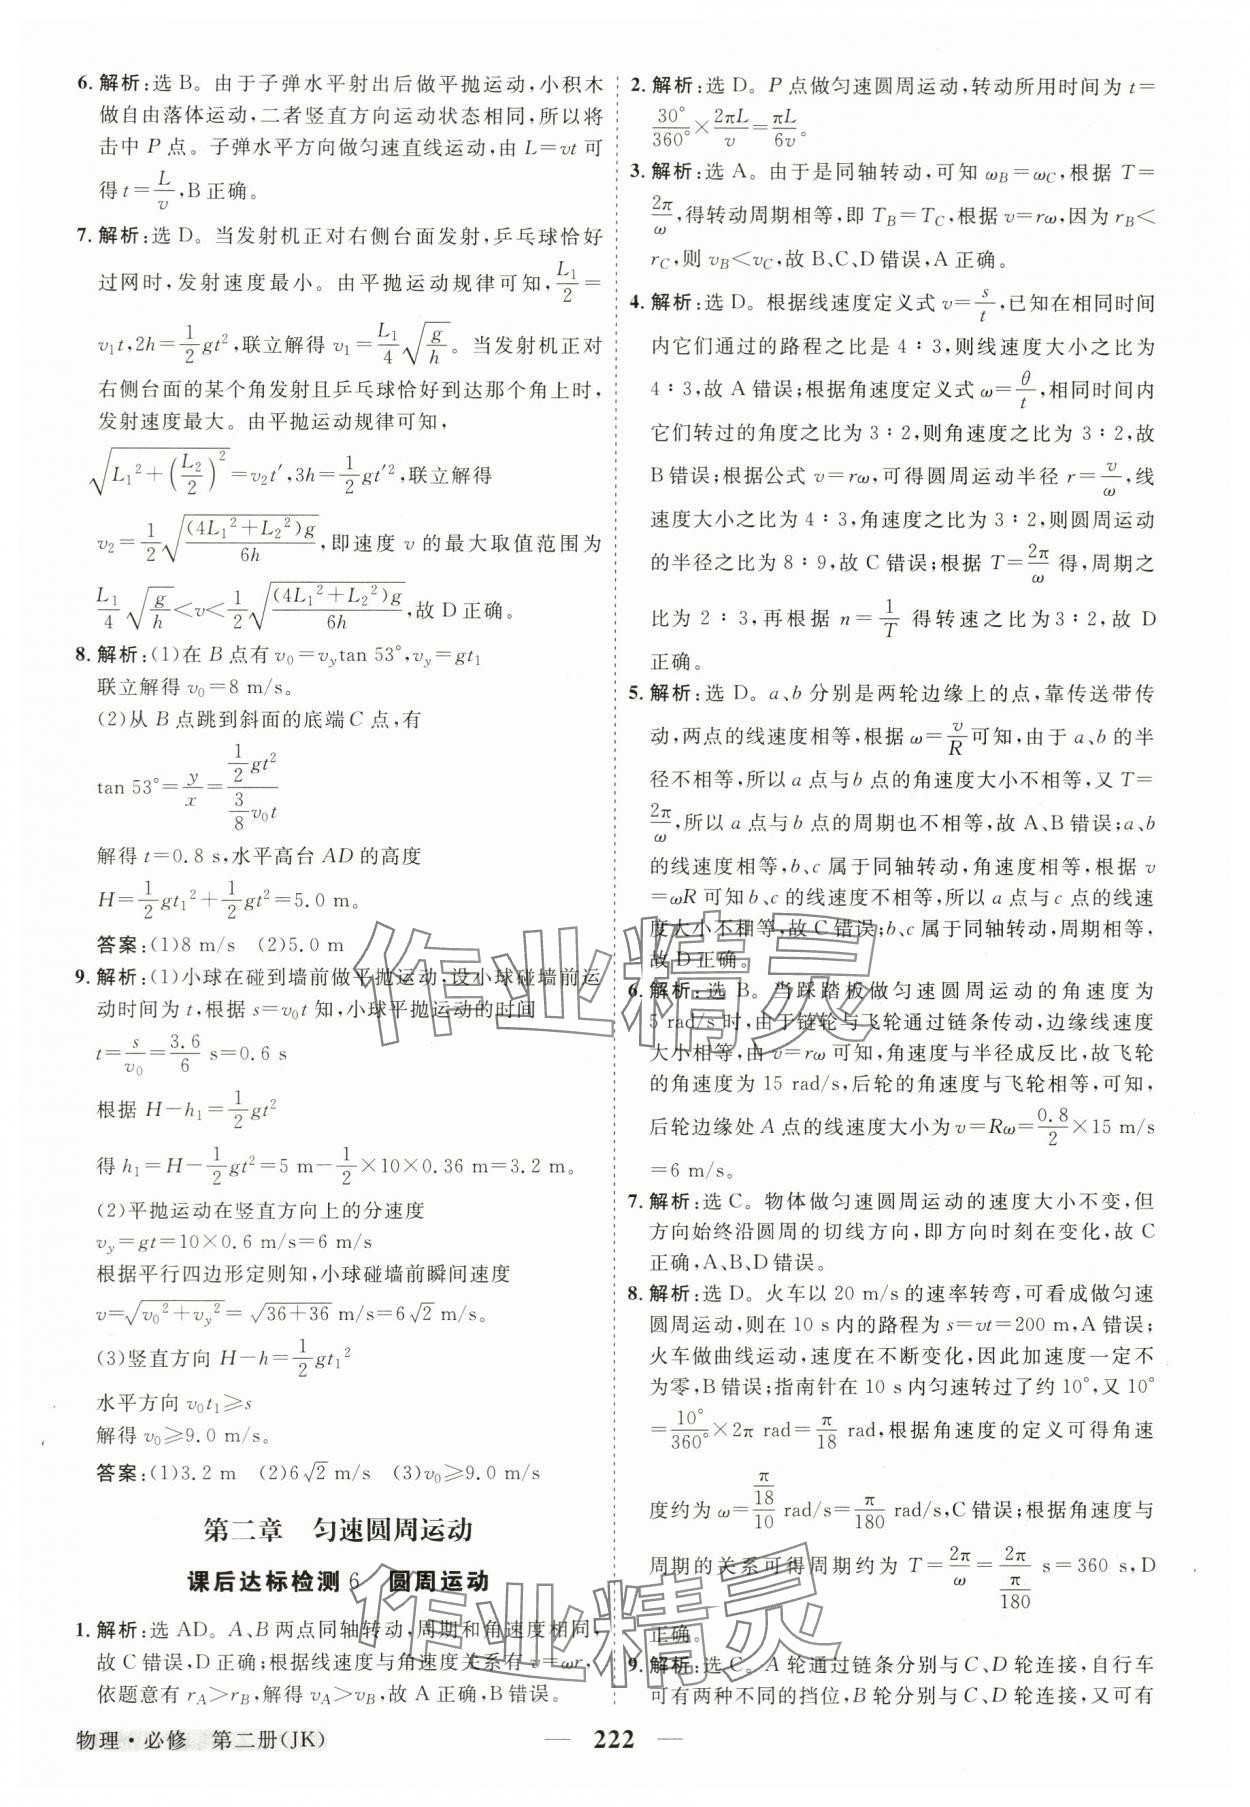 6. 解析:选 B。由于子弹水平射出后做平抛运动,小积木
做自由落体运动,二者竖直方向运动状态相同,所以将
击中 P 点。子弹水平方向做匀速直线运动,由 L=vt 可
得 t=L/v,B 正确。
7. 解析:选 D。当发射机正对右侧台面发射,乒乓球恰好
过网时,发射速度最小。由平抛运动规律可知,L₁/2=
v₁t,2h=1/2gt²,联立解得 v₁=L₁/4√(g/h)。当发射机正对
右侧台面的某个角发射且乒乓球恰好到达两个角上时,
发射速度最大。由平抛运动规律可知,
√(L₁²+(L₂/2)²)=v₂t′,3h=1/2gt′²,联立解得
v₂=1/2√((4L₁²+L₂²)g/6h),即速度 v 的最大取值范围为
L₁/4√(g/h)<v<1/2√((4L₁²+L₂²)g/6h),故 D 正确。
8. 解析:(1)在 B 点有 v₀=v_y tan 53°,v_y=gt₁
联立解得 v₀=8 m/s。
(2)从 B 点跳到斜面的底端 C 点,有
tan 53°=y/x=(1/2gt²)/(3/8v₀t)
解得 t=0.8 s,水平高台 AD 的高度
H=1/2gt₁²+1/2gt²=5.0 m。
答案:(1)8 m/s (2)5.0 m
9. 解析:(1)小球在碰到墙前做平抛运动,设小球碰墙前运
动时间为 t,根据 s=v₀t 知,小球平抛运动的时间
t=s/v₀=3.6/6 s=0.6 s
根据 H-h₁=1/2gt²
得 h₁=H-1/2gt²=5 m-1/2×10×0.36 m=3.2 m。
(2)平抛运动在竖直方向上的分速度
v_y=gt=10×0.6 m/s=6 m/s
根据平行四边形定则知,小球碰墙前瞬间速度
v=√(v₀²+v_y²)=√(36+36) m/s=6√2 m/s。
(3)竖直方向 H-h=1/2gt₁²
水平方向 v₀t₁≥s
解得 v₀≥9.0 m/s。
答案:(1)3.2 m (2)6√2 m/s (3)v₀≥9.0 m/s
第二章 匀速圆周运动
课后达标检测 6 圆周运动
1. 解析:选 AD。A、B 两点同轴转动,周期和角速度相同,
故 C 错误,D 正确;根据线速度与角速度关系有 v=ωr,
依题意有 r_A>r_B,解得 v_A>v_B,故 A 正确,B 错误。
2. 解析:选 D。P 点做匀速圆周运动,转动所用时间为 t=
30°/360°×2πL/v=πL/6v。
3. 解析:选 A。由于是同轴转动,可知 ω_B=ω_C,根据 T=
2π/ω,得转动周期相等,即 T_B=T_C,根据 v=rω,因为 r_B<
r_C,则 v_B<v_C,故 B、C、D 错误,A 正确。
4. 解析:选 D。根据线速度定义式 v=s/t,已知在相同时间
内它们通过的路程之比是 4∶3,则线速度大小之比为
4∶3,故 A 错误;根据角速度定义式 ω=θ/t,相同时间内
它们转过的角度之比为 3∶2,则角速度之比为 3∶2,故
B 错误;根据公式 v=rω,可得圆周运动半径 r=v/ω,线
速度大小之比为 4∶3,角速度之比为 3∶2,则圆周运动
的半径之比为 8∶9,故 C 错误;根据 T=2π/ω 得,周期之
比为 2∶3,再根据 n=1/T 得转速之比为3∶2,故 D
正确。
5. 解析:选 D。a、b 分别是两轮边缘上的点,靠传送带传
动,两点的线速度相等,根据 ω=v/R可知,由于 a、b 的半
径不相等,所以 a 点与 b 点的角速度大小不相等,又 T=
2π/ω,所以 a 点与 b 点的周期也不相等,故 A、B 错误;a、b
的线速度相等,b、c 属于同轴转动,角速度相等,根据 v
=ωR 可知 b、c 的线速度不相等,所以 a 点与 c 点的线速
度大小不相等,故 C 错误;b、c 属于同轴转动,周期相等,
故 D 正确。
6. 解析:选 B。当踩踏板做匀速圆周运动的角速度为
5 rad/s 时,由于链轮与飞轮通过链条传动,边缘线速度
大小相等,由 v=rω 可知,角速度与半径成反比,故飞轮
的角速度为 15 rad/s,后轮的角速度与飞轮相等,可知,
后轮边缘处 A 点的线速度大小为 v=Rω=0.8/2×15 m/s
=6 m/s。
7. 解析:选 C。物体做匀速圆周运动的速度大小不变,但
方向始终沿圆周的切线方向,即方向时刻在变化,故 C
正确,A、B、D 错误。
8. 解析:选 D。火车以 20 m/s 的速率转弯,可看成做匀速
圆周运动,则在 10 s 内的路程为 s=vt=200 m,A 错误;
火车做曲线运动,速度在不断变化,因此加速度一定不
为零,B 错误;指南针在 10 s 内匀速转过了约 10°,又 10°
=10°/360°×2π rad=π/18 rad,根据角速度的定义可得角速
度约为 ω=(π/18)/10 rad/s=π/180 rad/s,C 错误;根据角速度与
周期的关系可得周期约为 T=2π/ω=2π/(π/180) s=360 s,D
正确。
9. 解析:选 C。A 轮通过链条分别与 C、D 轮连接,自行车
可有两种不同的挡位,B 轮分别与 C、D 轮连接,又可有
物理·必修 第二册(JK)
— 222 —
作业精灵
作业精灵